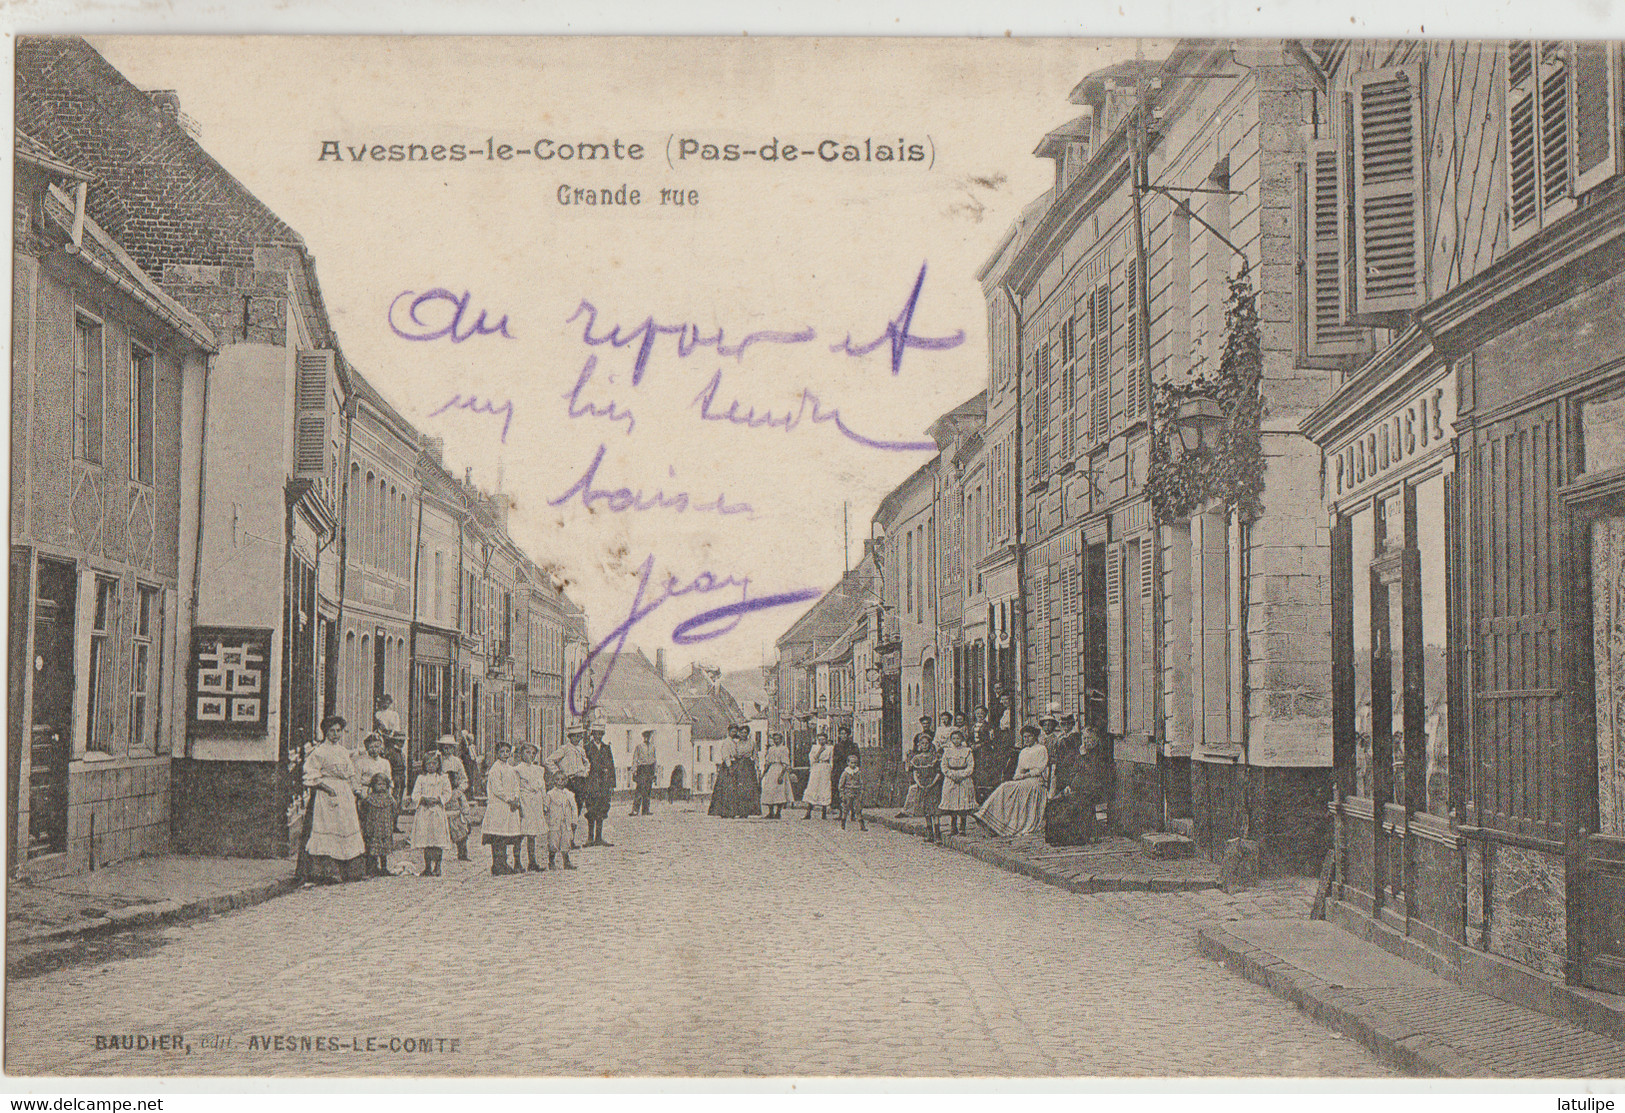 Avesnes-le-Comte (Pas-de-Calais)
Grande rue
Au revoir et
un bien tendre
baiser
Jean
PHARMACIE
BAUDIER, édit. AVESNES-LE-COMTE
Delcampe.net
latulipe